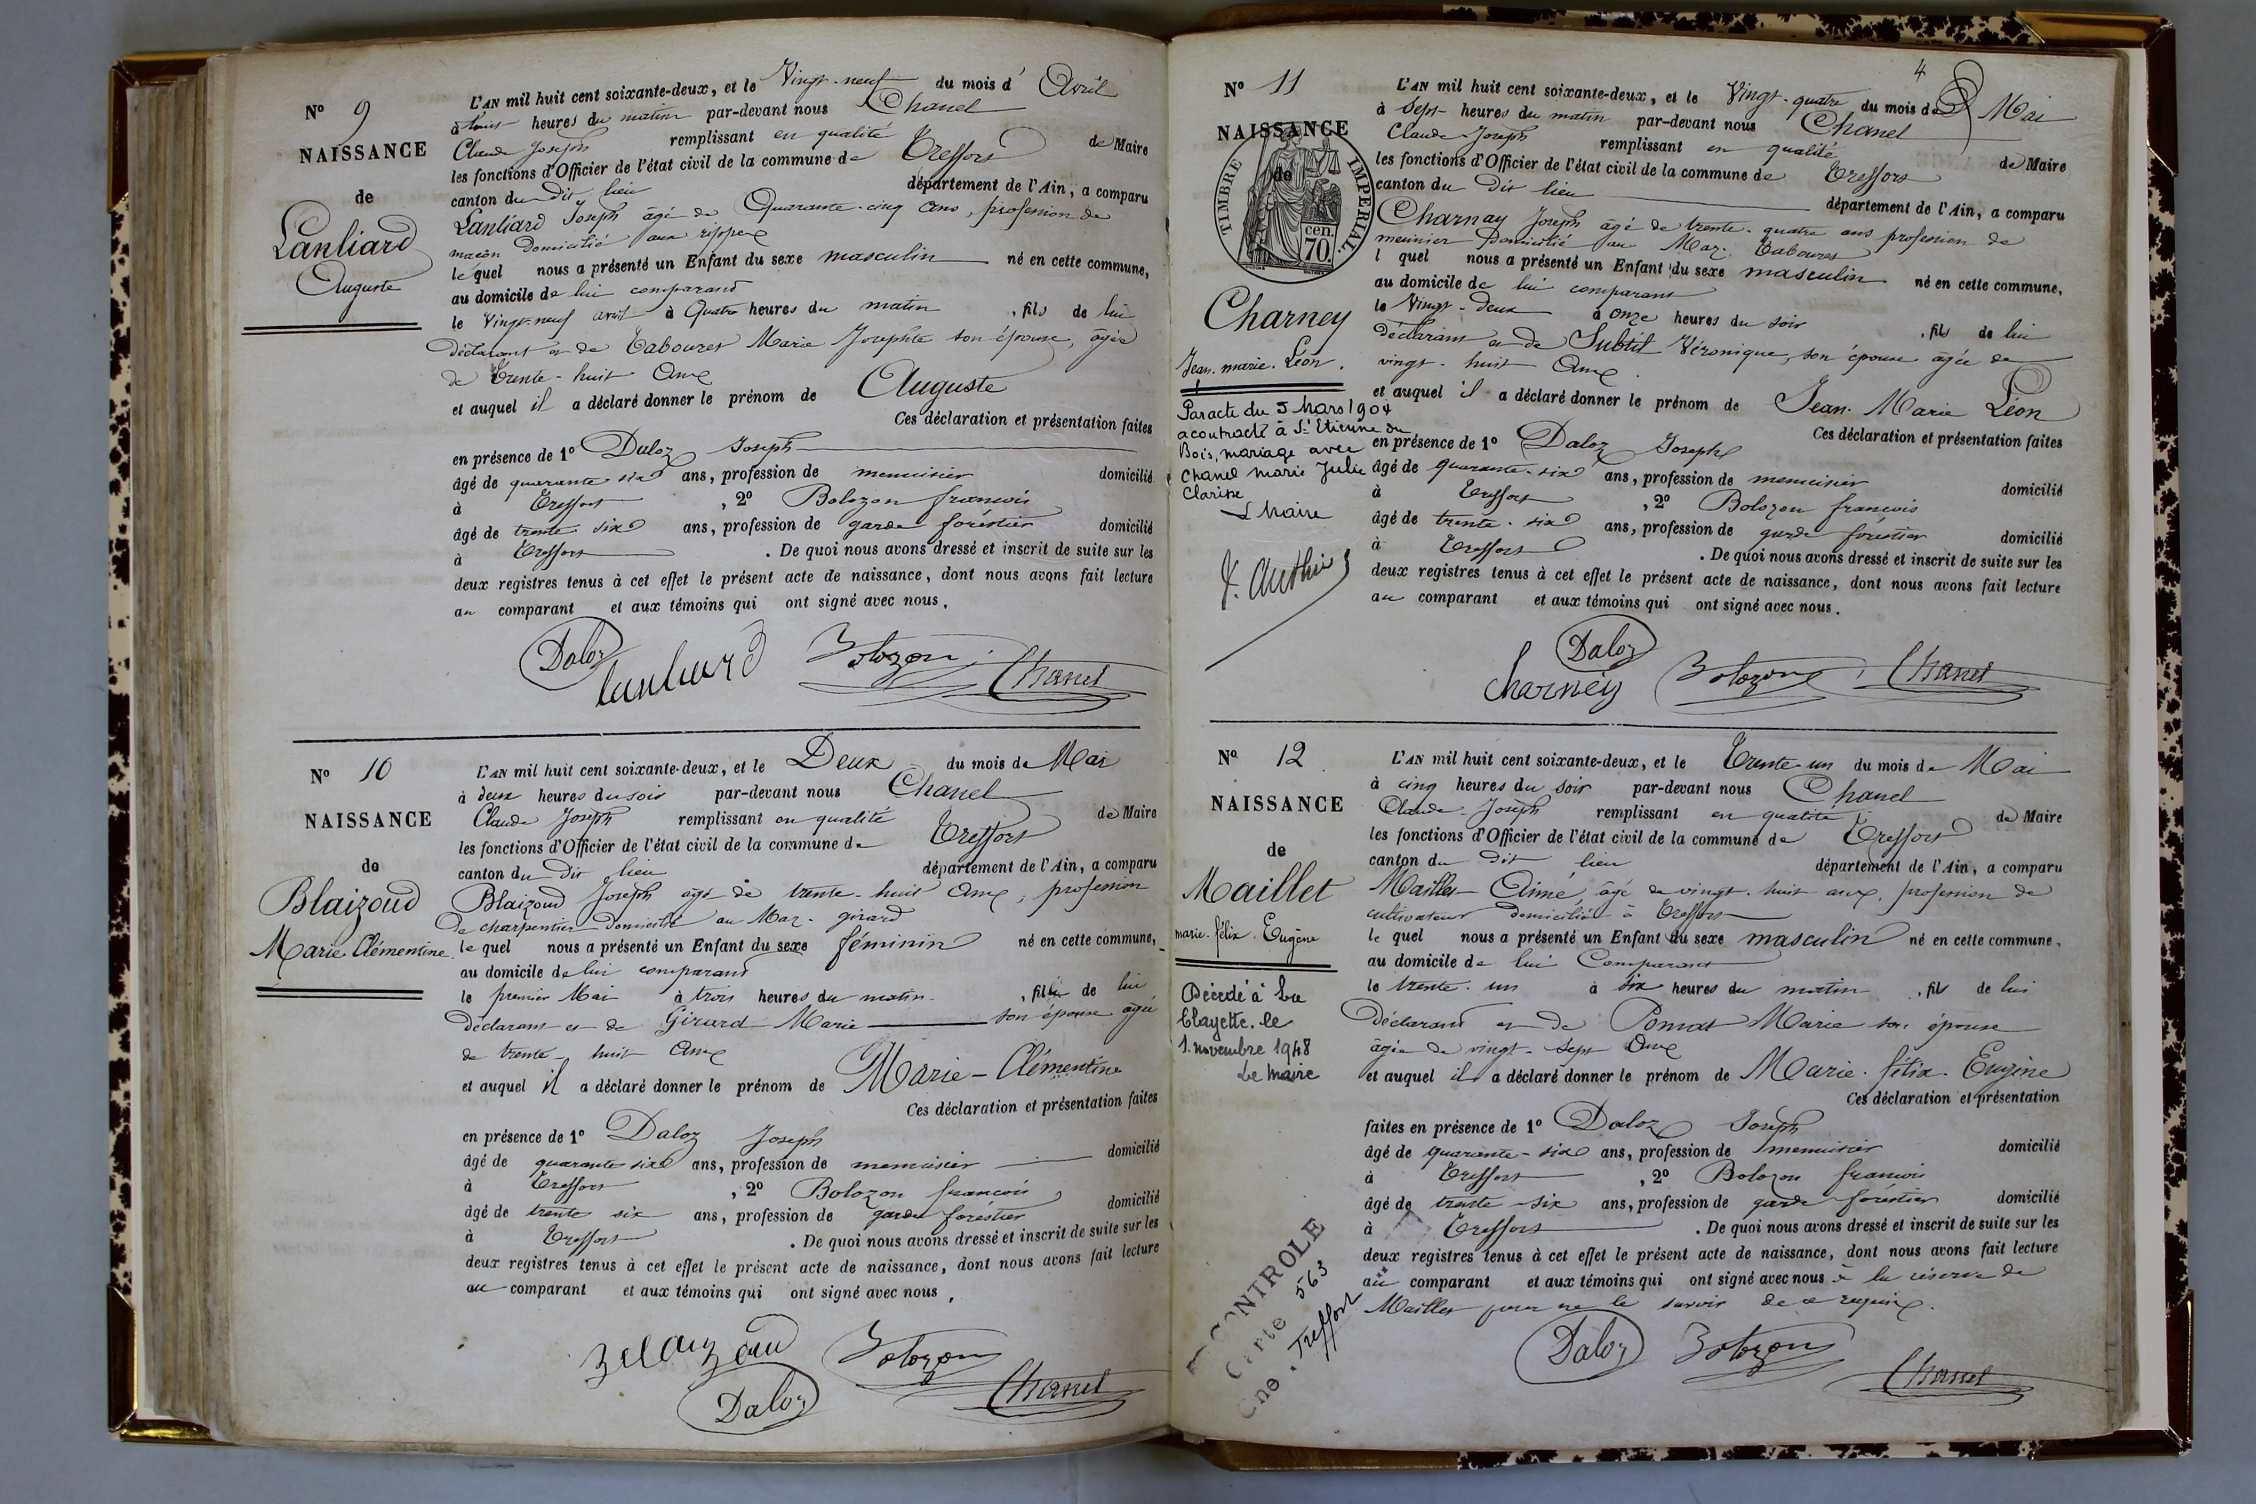 Nº 9
NAISSANCE
de
Lanliard
Auguste
L'AN mil huit cent soixante-deux, et le Vingt-neuf du mois d'Avril
à heures du matin par-devant nous Chanel
Claude Joseph remplissant en qualité de Maire
les fonctions d'Officier de l'état civil de la commune de Treffort
canton du dit lieu département de l'Ain, a comparu
Lanliard Joseph âgé de Quarante-cinq ans, profession de
maçon domicilié aux rippes
lequel nous a présenté un Enfant du sexe masculin né en cette commune,
au domicile de lui comparant
le Vingt-neuf avril à Quatre heures du matin, fils de lui
déclarant et de Tabouret Marie Josephte son épouse, âgée
de Trente-huit ans
et auquel il a déclaré donner le prénom de Auguste
Ces déclaration et présentation faites
en présence de 1º Daloz Joseph
âgé de quarante six ans, profession de menuisier domicilié
à Treffort, 2º Bolozon françois
âgé de trente six ans, profession de garde foréstier domicilié
à Treffort. De quoi nous avons dressé et inscrit de suite sur les
deux registres tenus à cet effet le présent acte de naissance, dont nous avons fait lecture
au comparant et aux témoins qui ont signé avec nous.
Daloz Lanliard Bolozon Chanel
Nº 10
NAISSANCE
de
Blaizoud
Marie Clémentine
L'AN mil huit cent soixante-deux, et le Deux du mois de Mai
à deux heures du soir par-devant nous Chanel
Claude Joseph remplissant en qualité de Maire
les fonctions d'Officier de l'état civil de la commune de Treffort
canton du dit lieu département de l'Ain, a comparu
Blaizoud Joseph âgé de trente-huit ans, profession
de charpentier domicilié au Maz-girard
lequel nous a présenté un Enfant du sexe féminin né en cette commune,
au domicile de lui comparant
le premier Mai à trois heures du matin, fille de lui
déclarant et de Girard Marie son épouse âgée
de trente-huit ans
et auquel il a déclaré donner le prénom de Marie-Clémentine
Ces déclaration et présentation faites
en présence de 1º Daloz Joseph
âgé de quarante six ans, profession de menuisier domicilié
à Treffort, 2º Bolozon françois
âgé de trente six ans, profession de garde foréstier domicilié
à Treffort. De quoi nous avons dressé et inscrit de suite sur les
deux registres tenus à cet effet le présent acte de naissance, dont nous avons fait lecture
au comparant et aux témoins qui ont signé avec nous.
Bolozon
Daloz Chanel
4
Nº 11
NAISSANCE
de
TIMBRE IMPERIAL.
70 cen.
Charney
Jean. marie. Léon.
Par acte du 5 Mars 1904
a contracté à St Etienne du
Bois, mariage avec
Chanel Marie Julie
Clarisse
L Maire
L'AN mil huit cent soixante-deux, et le Vingt-quatre du mois de Mai
à Sept heures du matin par-devant nous Chanel
Claude Joseph remplissant en qualité de Maire
les fonctions d'Officier de l'état civil de la commune de Treffort
canton du dit lieu département de l'Ain, a comparu
Charnay Joseph âgé de trente-quatre ans profession de
meunier Domicilié au Maz-Tabouret
lequel nous a présenté un Enfant du sexe masculin né en cette commune,
au domicile de lui comparant
le Vingt-deux à onze heures du soir, fils de lui
déclarant et de Subtil Véronique, son épouse âgée de
vingt-huit ans
et auquel il a déclaré donner le prénom de Jean-Marie Léon
Ces déclaration et présentation faites
en présence de 1º Daloz Joseph
âgé de quarante-six ans, profession de menuisier domicilié
à Treffort, 2º Bolozon françois
âgé de trente-six ans, profession de garde foréstier domicilié
à Treffort. De quoi nous avons dressé et inscrit de suite sur les
deux registres tenus à cet effet le présent acte de naissance, dont nous avons fait lecture
au comparant et aux témoins qui ont signé avec nous.
Daloz
Charney Bolozon Chanel
Nº 12
NAISSANCE
de
Maillet
marie. félix. Eugène
Décédé à La
Clayette. le
1. novembre 1948
Le Maire
CONTROLE
Carte 563
Cne. Treffort
L'AN mil huit cent soixante-deux, et le Trente-un du mois de Mai
à cinq heures du soir par-devant nous Chanel
Claude Joseph remplissant en qualité de Maire
les fonctions d'Officier de l'état civil de la commune de Treffort
canton du dit lieu département de l'Ain, a comparu
Maillet Aimé, âgé de vingt-huit ans, profession de
cultivateur domicilié à Treffort
lequel nous a présenté un Enfant du sexe masculin né en cette commune.
au domicile de lui Comparant
le trente-un à six heures du matin, fils de lui
Déclarant et de Pomat Marie son épouse
âgée de vingt-sept ans
et auquel il a déclaré donner le prénom de Marie-félix-Eugène
Ces déclaration et présentation
faites en présence de 1º Daloz Joseph
âgé de quarante-six ans, profession de menuisier domicilié
à Treffort, 2º Bolozon françois
âgé de trente-six ans, profession de garde foréstier domicilié
à Treffort. De quoi nous avons dressé et inscrit de suite sur les
deux registres tenus à cet effet le présent acte de naissance, dont nous avons fait lecture
au comparant et aux témoins qui ont signé avec nous à la réserve de
Maillet pour ne le savoir de ce requis.
Daloz Bolozon
Chanel